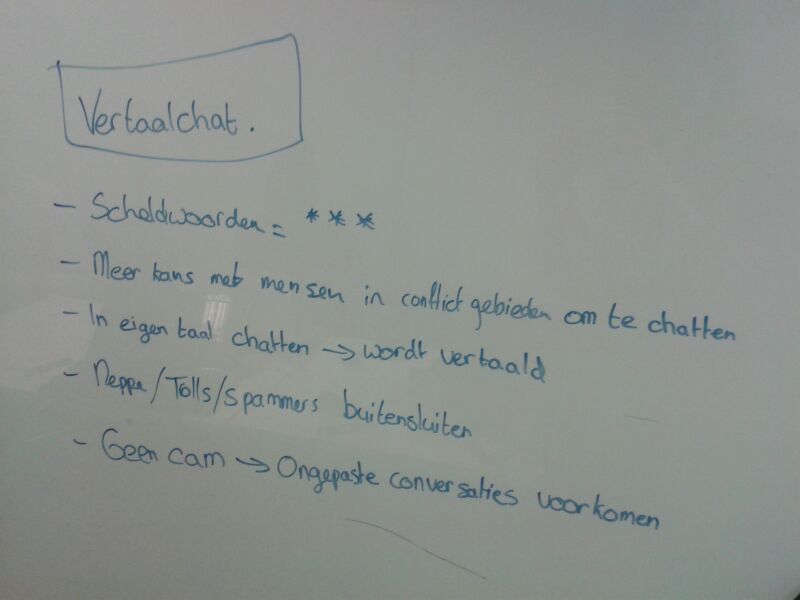 Vertaalchat.
- Scheldwoorden = ***
- Meer kans met mensen in conflict gebieden om te chatten
- In eigen taal chatten → wordt vertaald
- Neppe/Tolls/Spammers buitensluiten
- Geen cam → Ongepaste conversaties voorkomen